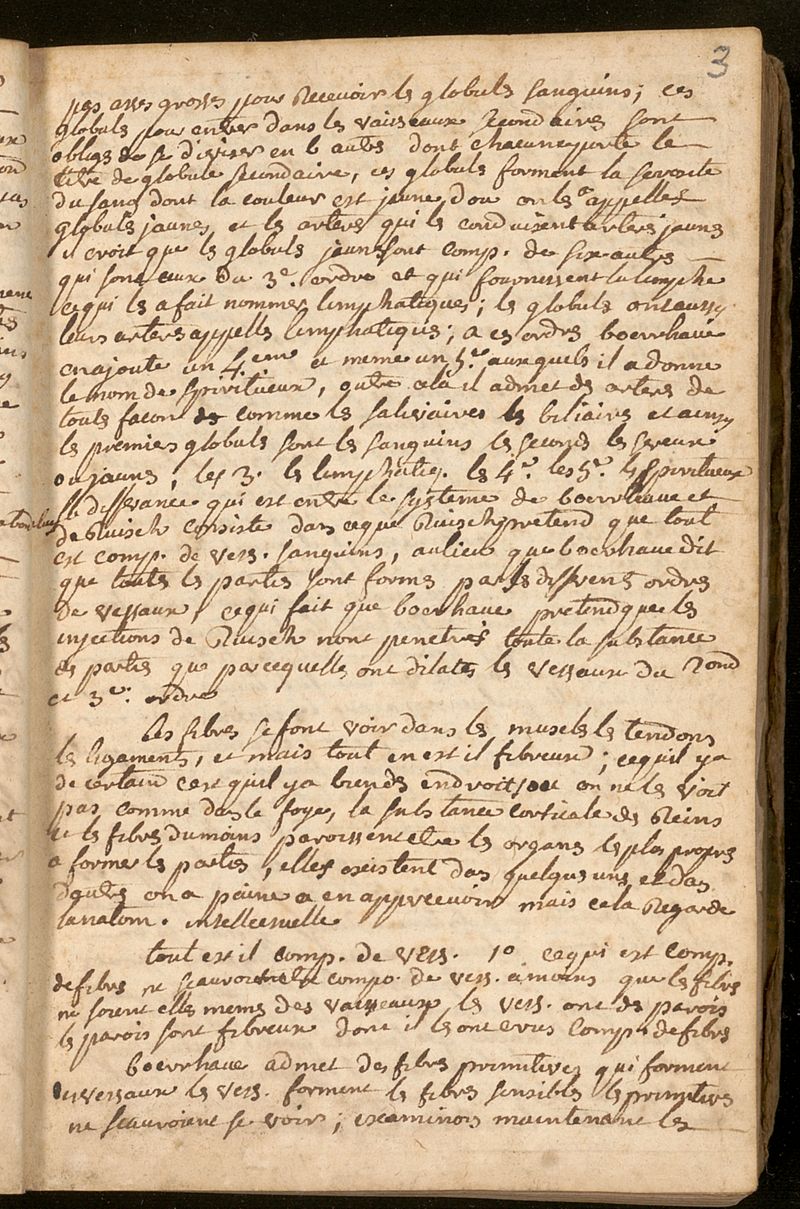 3
pas asses grosses pour recevoir les globuls sanguins; ces
globuls pour entrer dans les vaisseaux secondaires sont
obligs de se diviser en 6 autrs dont chacune porte le
titre de globule secondaire, ces globuls forment la serosite
du sang dont la couleur est jaune, dou on ls appelles
globuls jaunes, et ls arters qui ls conduisent arters jauns
il croit que ls globuls jauns sont comp. de six autrs
qui sont ceux du 3e. ordre et qui fournissent la limphe
ce qui ls a fait nommer limphatiques; ls globuls ont aussy
leurs arters appells limphatiques; a cs ordrs boerrhave
en ajoute un 4.eme et meme un 5.e auxquels il a donne
le nom de spiritueux, outre cela il admet ds arters de
touts facons comme ls salivaires ls biliaires et ainsy
ls premiers globuls sont ls sanguins ls seconds ls sereux
ou jauns, les 3. ls limphatiq. ls 4e. les 5e. ls spiritueux
la difference qui est entre le systeme de boerrhave et
de Ruisch consiste dans ceque Ruisch pretend que tout
est comp. de vess. sanguins, aulieu que boerhave dit
que touts ls partis sont formés par ls differents ordrs
de vessaux, cequi fait que boerhave pretend que ls
injections de Ruisch nont penetrés toute la substance
ds partis que parcequells ont dilatés ls vessaux du 2ond
et 3e. ordre
Les fibrs se font voir dans ls muscls ls tendons
ls ligaments, et mais tout en est il fibreux; cequil y a
de certain cest quil y a bien ds endroits ou on ne ls voit
pas comme dans le foye, la substance corticale ds Reins
et ls fibrs du moins paroissent etre ls organs ls plus propres
a former ls partis, elles existent dans quelques uns, et dans
dautrs on a peine a en appercevoir mais cela Regarde
lanatom. intellectuelle
tout est il comp. de vess. 1o cequi est comp.
de fibrs ne scauroit etre compo. de vess. a moins que ls fibrs
ne soient ells memes des vaisseaux, ls vess. ont ds parois
ls parois sont fibreux donc ils ont crus comp. de fibrs
boerrhave admet des fibrs primitives qui forment
ls vessaux ls vess. forment ls fibrs sensibls ls primitivs
ne scauroient se voir; examinons maintenant ls